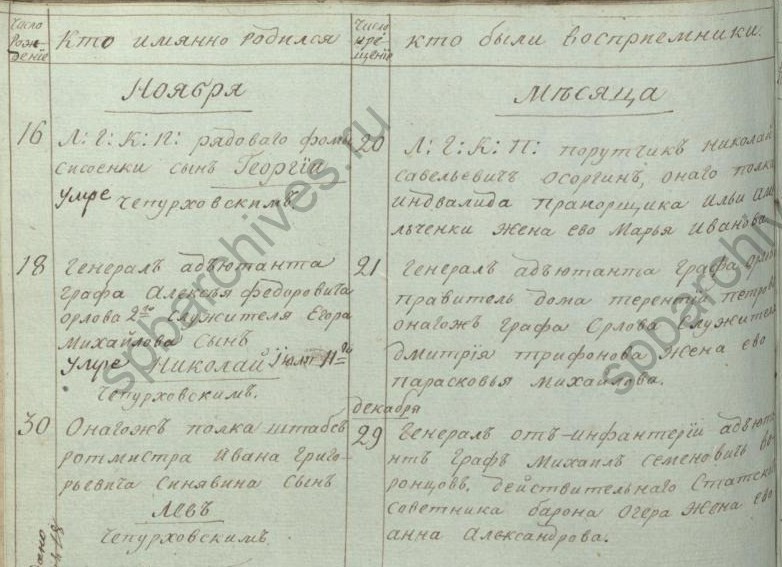 Число Рождение
Кто имянно родился
Число крещение
кто были восприемники.
Ноября
Мѣсяца
16
Л: Г: К: П: рядоваго фомы
сисоенки сынъ Георгiй
умре чепурховскимъ
20
Л: Г: К: П: порутчикъ николай
савельевичъ осоргинъ, онаго полка
индвалида прапорщика ильи
льченки жена ево Марья Иванова
18
Генералъ адъютанта
графа Алексѣя федоровича
орлова 2го служителя Егора
михайлова сынъ
умре Николай iюля 11го
чепурховскимъ.
21
Генералъ адъютанта графа орлова
правитель дома терентiй петровъ
онагожъ графа Орлова служителя
дмитрiя трифонова жена ево
парасковья михайлова.
декабря
30
Онагожъ полка штабсъ
ротмистра ивана григо-
рьевича синявина сынъ
Левъ
чепурховскимъ
29
Генералъ отъ-инфантерiи адъюта
нтъ графъ михаилъ семеновичъ во
ронцовъ. действительнаго статска
советника барона огера жена ево
анна Александрова.
spbarchives.ru
spbarchives